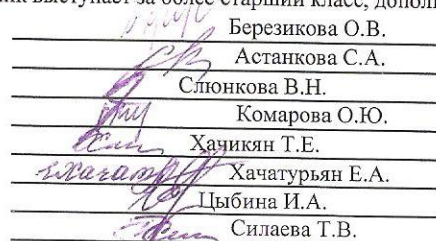 выступает за более старший класс,
Березикова О.В.
Астанкова С.А.
Слюнкова В.Н.
Комарова О.Ю.
Хачикян Т.Е.
Хачатурьян Е.А.
Цыбина И.А.
Силаева Т.В.